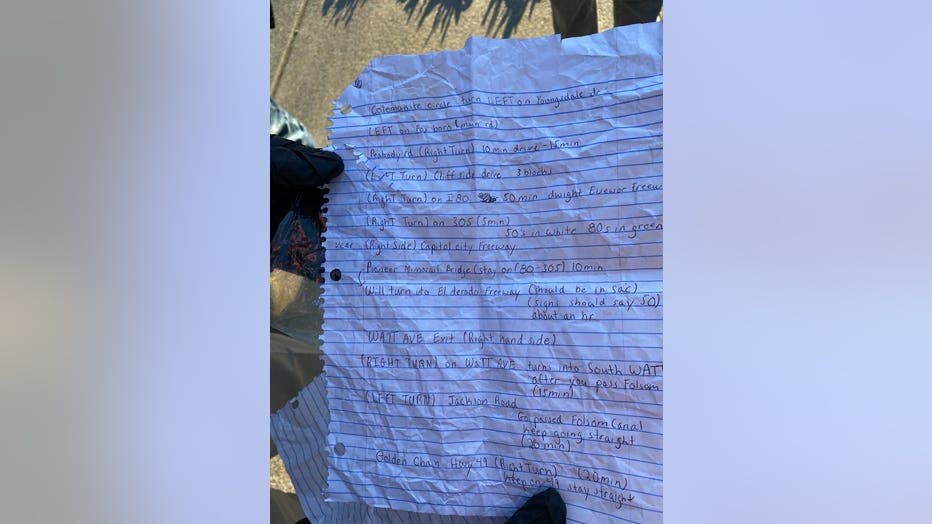 Colemanite circle turn LEFT on Youngsdale dr.
LEFT on Fox boro (main rd)
Peabody rd (Right Turn) 10 min drive - 15 min
(LEFT Turn) Cliffside drive 3 blocks
(Right Turn) on I 80 50 min dwight Eisewor freew
(Right Turn) on 305 (5min)
50's in white 80's in green
(Right Side) Capitol city Freeway
Pioneer Memorail Bridge (stay on (80-305) 10 min
Will turn into El derado Freeway (should be in sac)
(signs should say 50)
about an hr.
WATT AVE Exit (Right hand side)
(RIGHT TURN) on WATT AVE turns into South WATT
after you pass Folsom
(15min)
(LEFT TURN) Jackson Road
Go passed Folsom Canal
keep going straight
(20 min)
Golden Chain Hwy 49 (Right Turn) (20 min)
keep on 49 stay straight